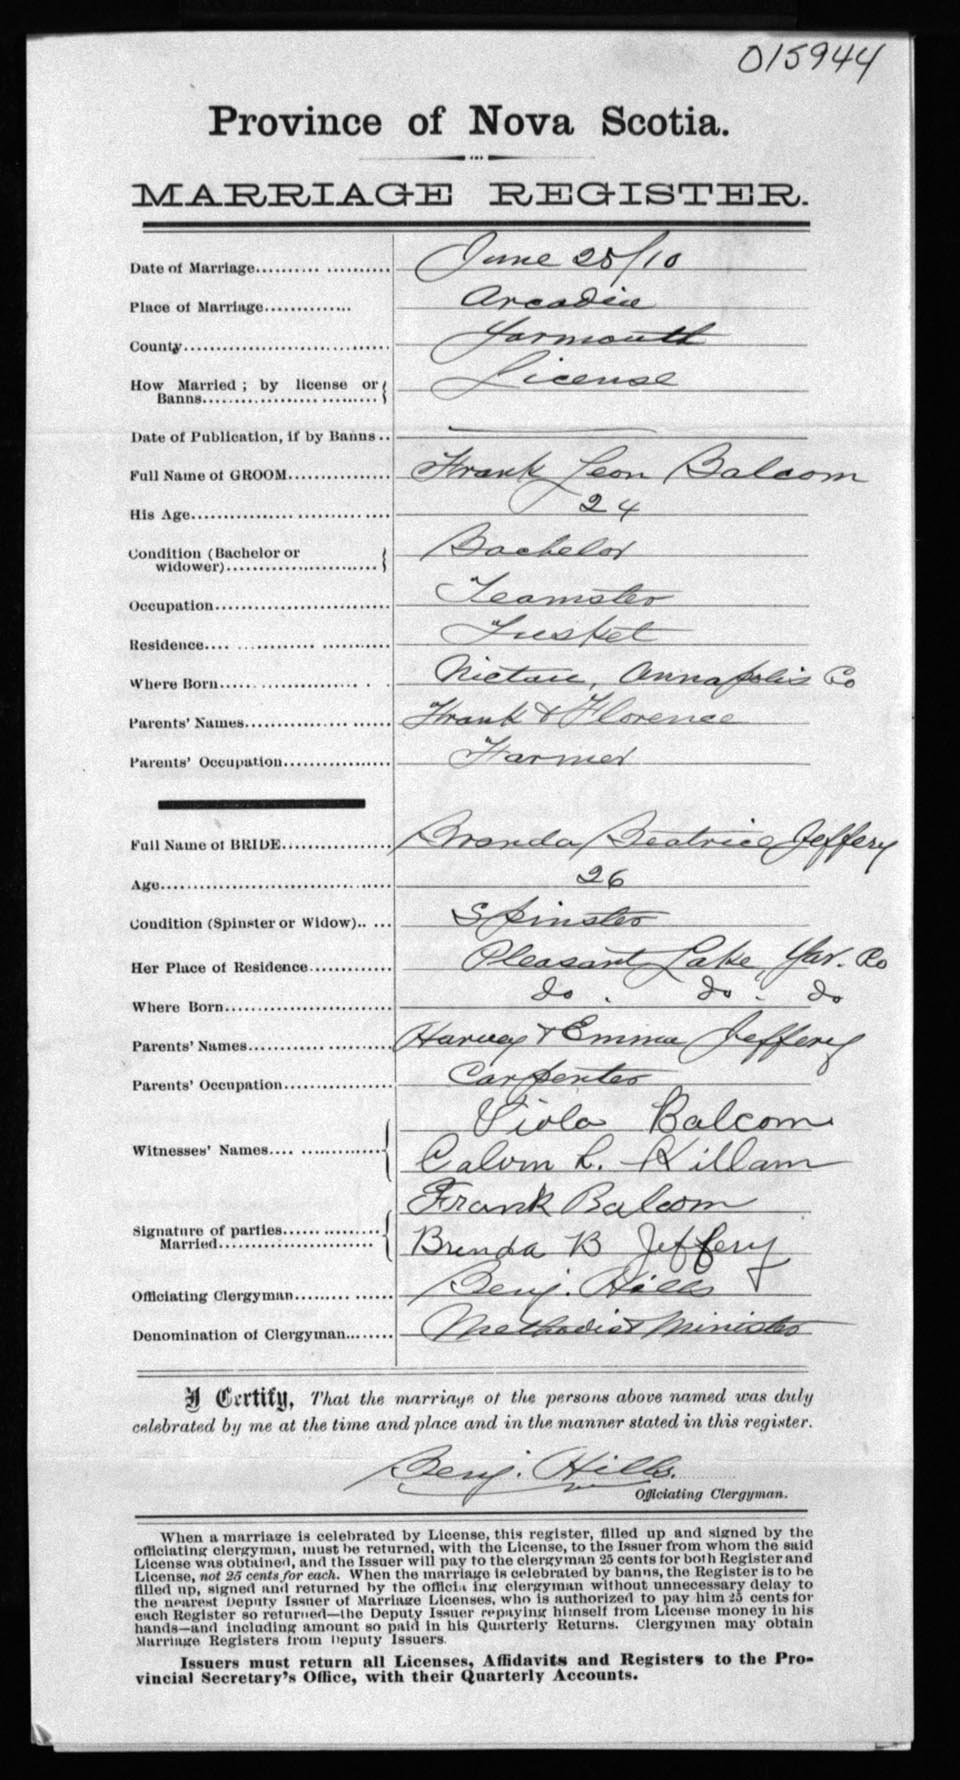 015944
Province of Nova Scotia.
MARRIAGE REGISTER.
Date of Marriage.......... ........... June 28/10
Place of Marriage.............. Arcadia
County................................... Yarmouth
How Married; by license or { License
Banns............................ {
Date of Publication, if by Banns ..
Full Name of GROOM................. Frank Leon Balcom
His Age.................................. 24
Condition (Bachelor or { Bachelor
widower)............................ {
Occupation.............................. Teamster
Residence.... ............ ............ Tusket
Where Born...................... . . Nictau, Annapolis Co
Parents' Names......................... Frank & Florence
Parents' Occupation.................. Farmer
Full Name of BRIDE................. Branda Beatrice Jeffery
Age....................................... 26
Condition (Spinster or Widow).. ... Spinster
Her Place of Residence............. Pleasant Lake, Yar. Co
Where Born............................ do . do . do
Parents' Names......................... Harvey & Emma Jeffery
Parents' Occupation.................. Carpenter
Viola Balcom
Witnesses' Names.... .............. {
Calvin L. Killam
Frank Balcom
Signature of parties.................. {
Married.......................... { Brenda B Jeffery
Officiating Clergyman................ Benj. Hills
Denomination of Clergyman........ Methodist Minister
I Certify, That the marriage of the persons above named was duly
celebrated by me at the time and place and in the manner stated in this register.
Benj. Hills.
Officiating Clergyman.
When a marriage is celebrated by License, this register, filled up and signed by the
officiating clergyman, must be returned, with the License, to the Issuer from whom the said
License was obtained, and the Issuer will pay to the clergyman 25 cents for both Register and
License, not 25 cents for each. When the marriage is celebrated by banns, the Register is to be
filled up, signed and returned by the officia ing clergyman without unnecessary delay to
the nearest Deputy Issuer of Marriage Licenses, who is authorized to pay him 25 cents for
each Register so returned—the Deputy Issuer repaying himself from License money in his
hands—and including amount so paid in his Quarterly Returns. Clergymen may obtain
Marriage Registers from Deputy Issuers.
Issuers must return all Licenses, Affidavits and Registers to the Pro-
vincial Secretary's Office, with their Quarterly Accounts.